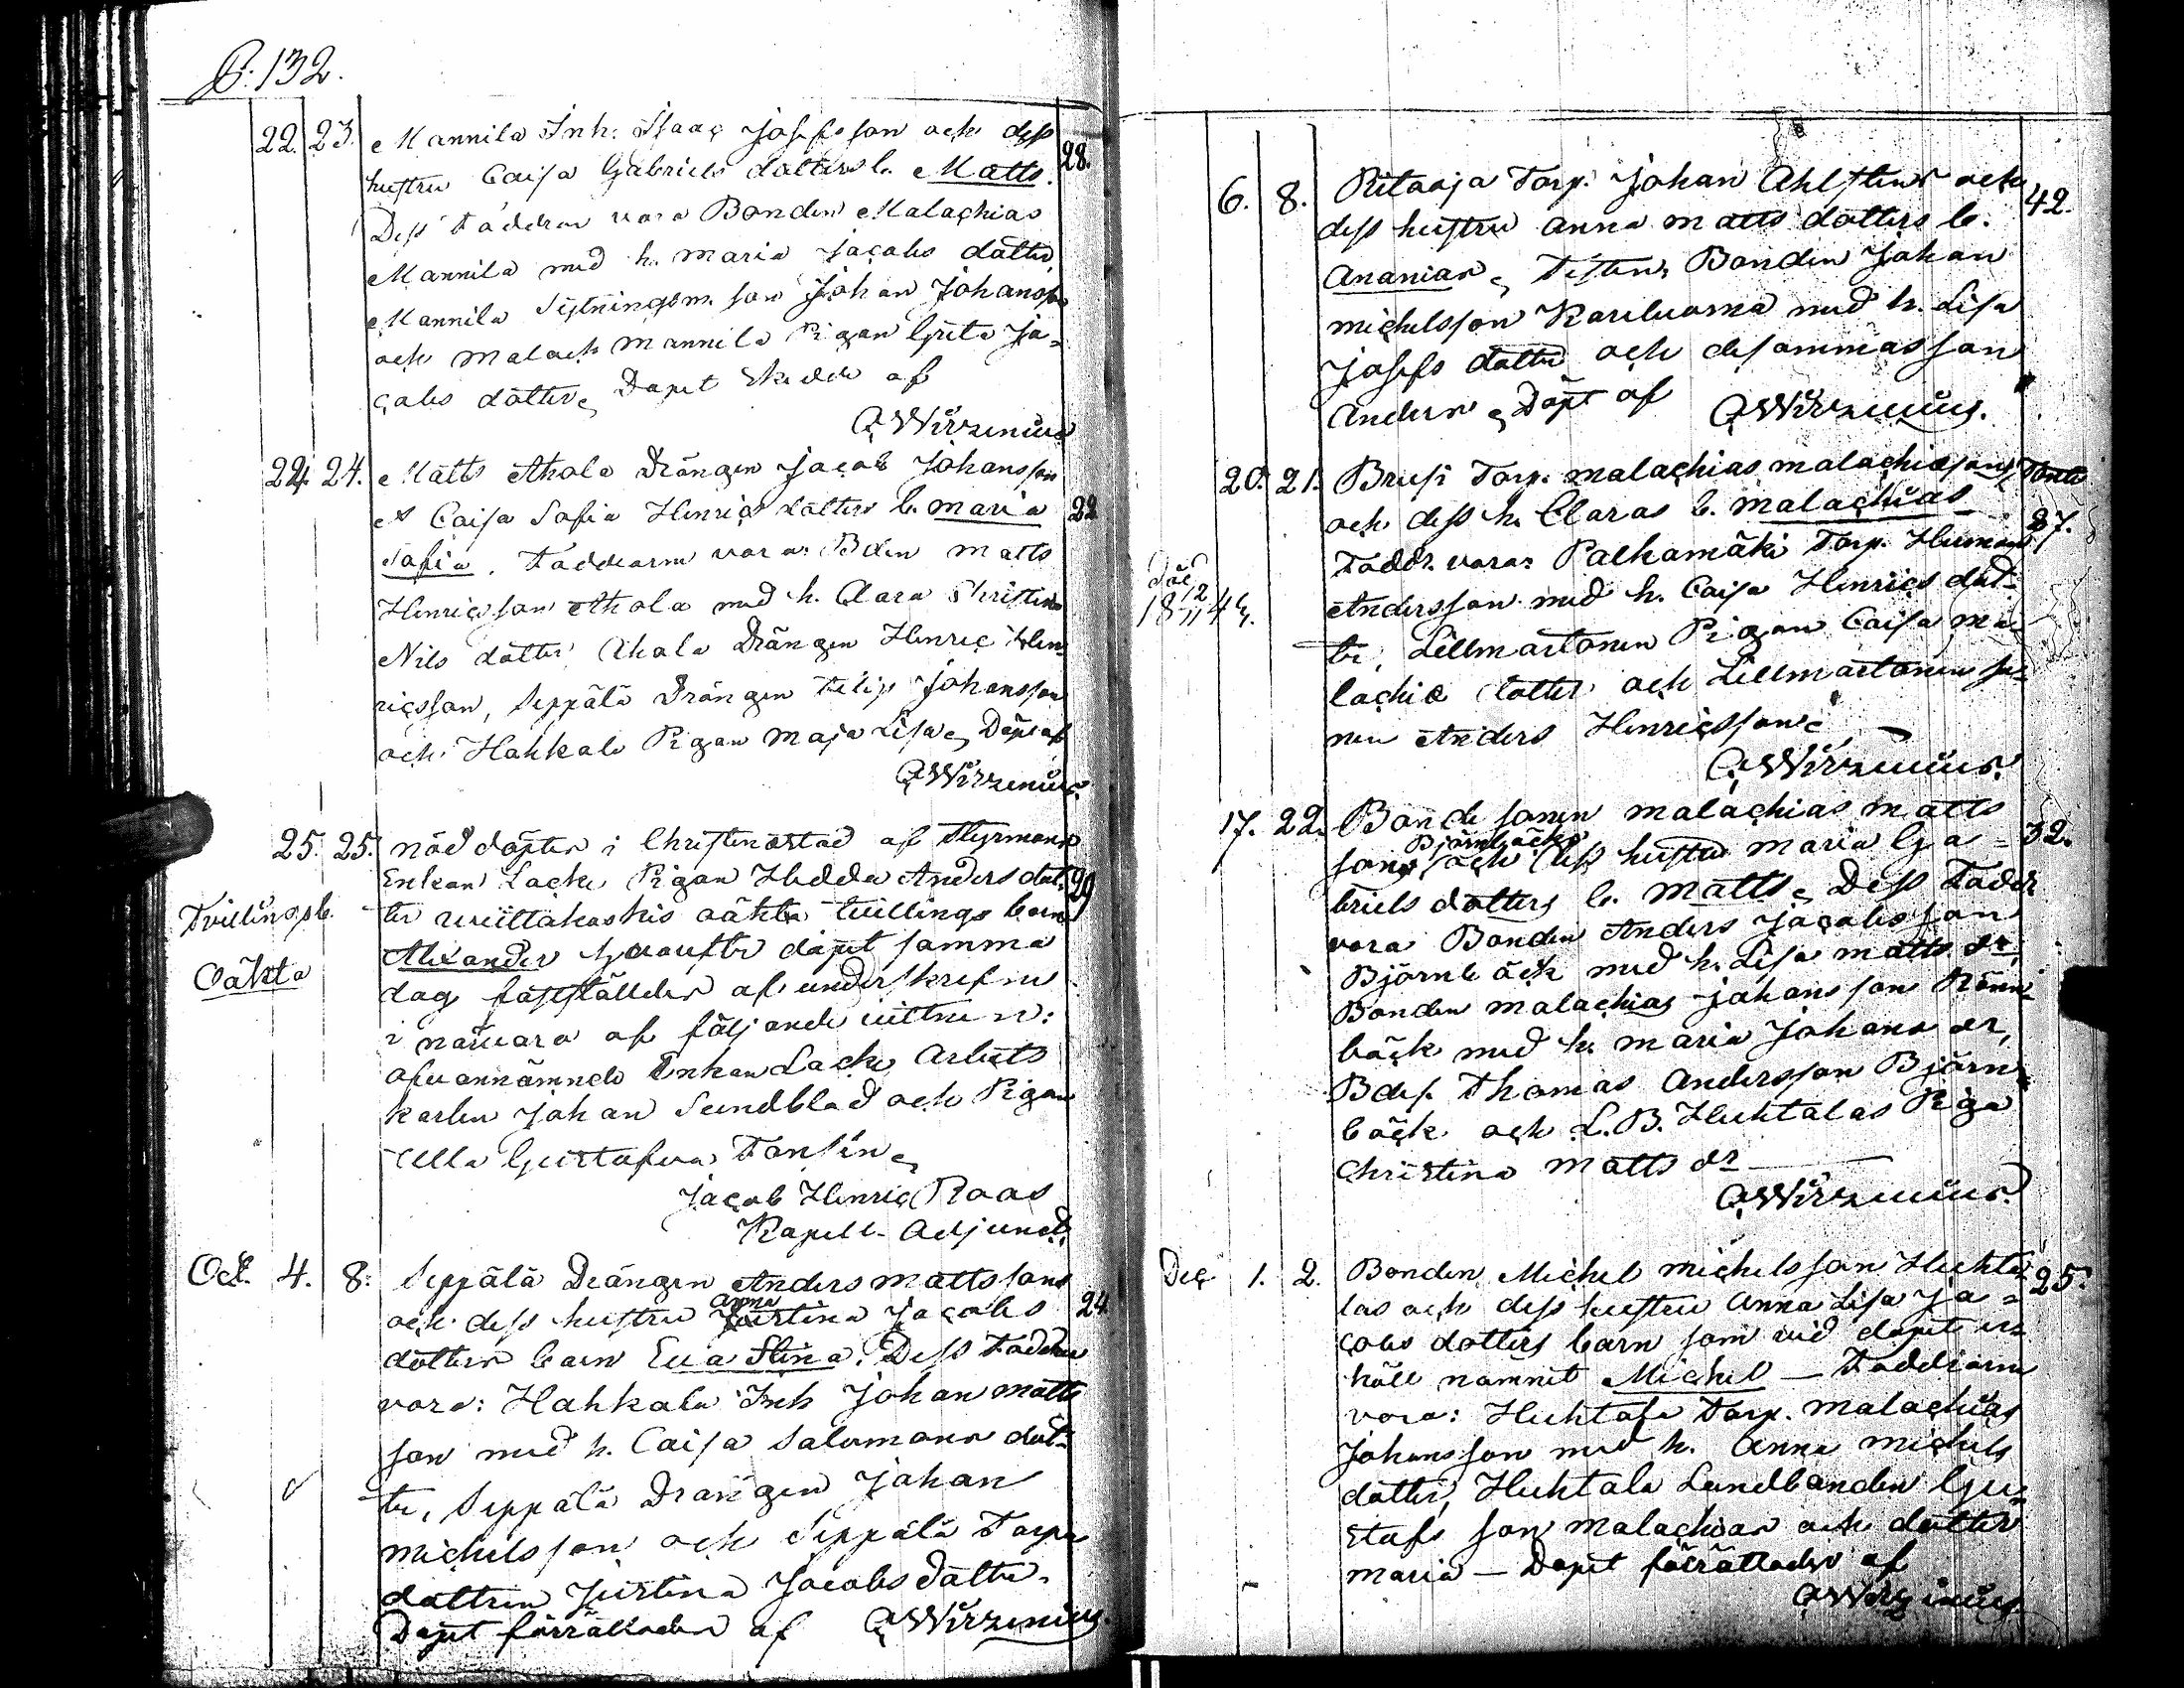 P. 132.
22. 23. Mannila Inh: Isaac Josefsson och dess
hustru Caisa Gabriels dotters b. Matts. 28.
Dess Faddrar vara Bonden Malachias
Mannila med h. Maria Jacobs dotter,
Mannila Sytningsm. son Johan Johansson
och Malach Mannila Pigan Greta Ja=
cobs dotter, Dopet skedde af
CWirzenius
22. 24. Matts Ahola Drängen Jacob Johansson
et Caisa Sofia Henrics dotters b. Maria 22
Sofia. Faddrarne vara: Bden Matts
Henricsson Ahola med h. Clara Christina
Nils dotter, Ahola Drängen Henric Hen=
ricsson, Seppälä Drängen Filip Johansson
och Hahkala Pigan Maja Lisa, Döpt af
CWirzenius.
25. 25. nöd döpten i Christinæstad af Styrmans
Enkan Lack, Pigan Hedda Anders dot= 29
Tvillingsb. ter Wiitakoskis oäkta tvillings barn
Alexander Gustaf dopet samma
Oäkta
dag fastställdes af underskrefne
i närvaro af följande vittnen:
ofvannämnde Enkan Lack, Arbets
karlen Johan Sundblad och Pigan
Ulla Gustafva Fonsin
Jacob Henric Roos
Kapell. Adjunct.
Oct. 4. 8. Seppälä Drängen Anders Mattssons
Anna
och dess hustru Justina Jacobs 24
dotters barn Eva Stina. Dess Faddrar
vara: Hahkala Inh Johan Matts
son med h. Caisa Salomons dot=
ter, Seppälä Drängen Johan
Michelsson och Seppälä Torpare
dottren Justina Jacobs dotter.
Dopet förrättades af CWirzenius.
6. 8. Ritaoja Torp. Johan Ahlstens och 42.
dess hustru Anna Matts dotters b.
Ananias, Testes, Bonden Johan
Michelsson Kariluoma med h. Lisa
Josefs dotter och desammas son
Anders, Döpt af CWirzenius.
20. 21. Brusi Torp. Malachias Malachiassons
och dess h. Claras b. Malachias 27.
Faddr. vara: Palhomäki Torp. Herman
död 12 1844. Andersson med h. Caisa Henrics dot=
ter, Lillmartonen Pigan Caisa Ma
lachiæ dotter och Lillmartonen so=
nen Anders Henricsson
CWirzenius.
17. 22. Bonde sonen Malachias Matts
Björnbäcks
sons och dess hustru Maria Ga= 32.
briels dotters b. Matts, Dess Faddr
vara Bonden Anders Jacobsson
Björnbäck med h. Lisa Matts dr,
Bonden Malachias Johansson Rönn=
bäck med h. Maria Johans dr,
Bdes. Thomas Andersson Björn=
bäck och L.B. Huhtalas Piga
Christina Matts dr
CWirzenius.
Dec 1. 2. Bonden Michel Michelsson Huhta= 25.
las och dess hustru Anna Lisa Ja=
cobs dotters barn som vid dopet er=
höll namnet Michel — Faddrarne
vara: Huhtala Torp. Malachias
Johansson med h. Anna Michels
dotter, Huhtala Landbonden Gu=
stafs son Malachias och dotter
Maria — Dopet förrättades af
CWirzenius.